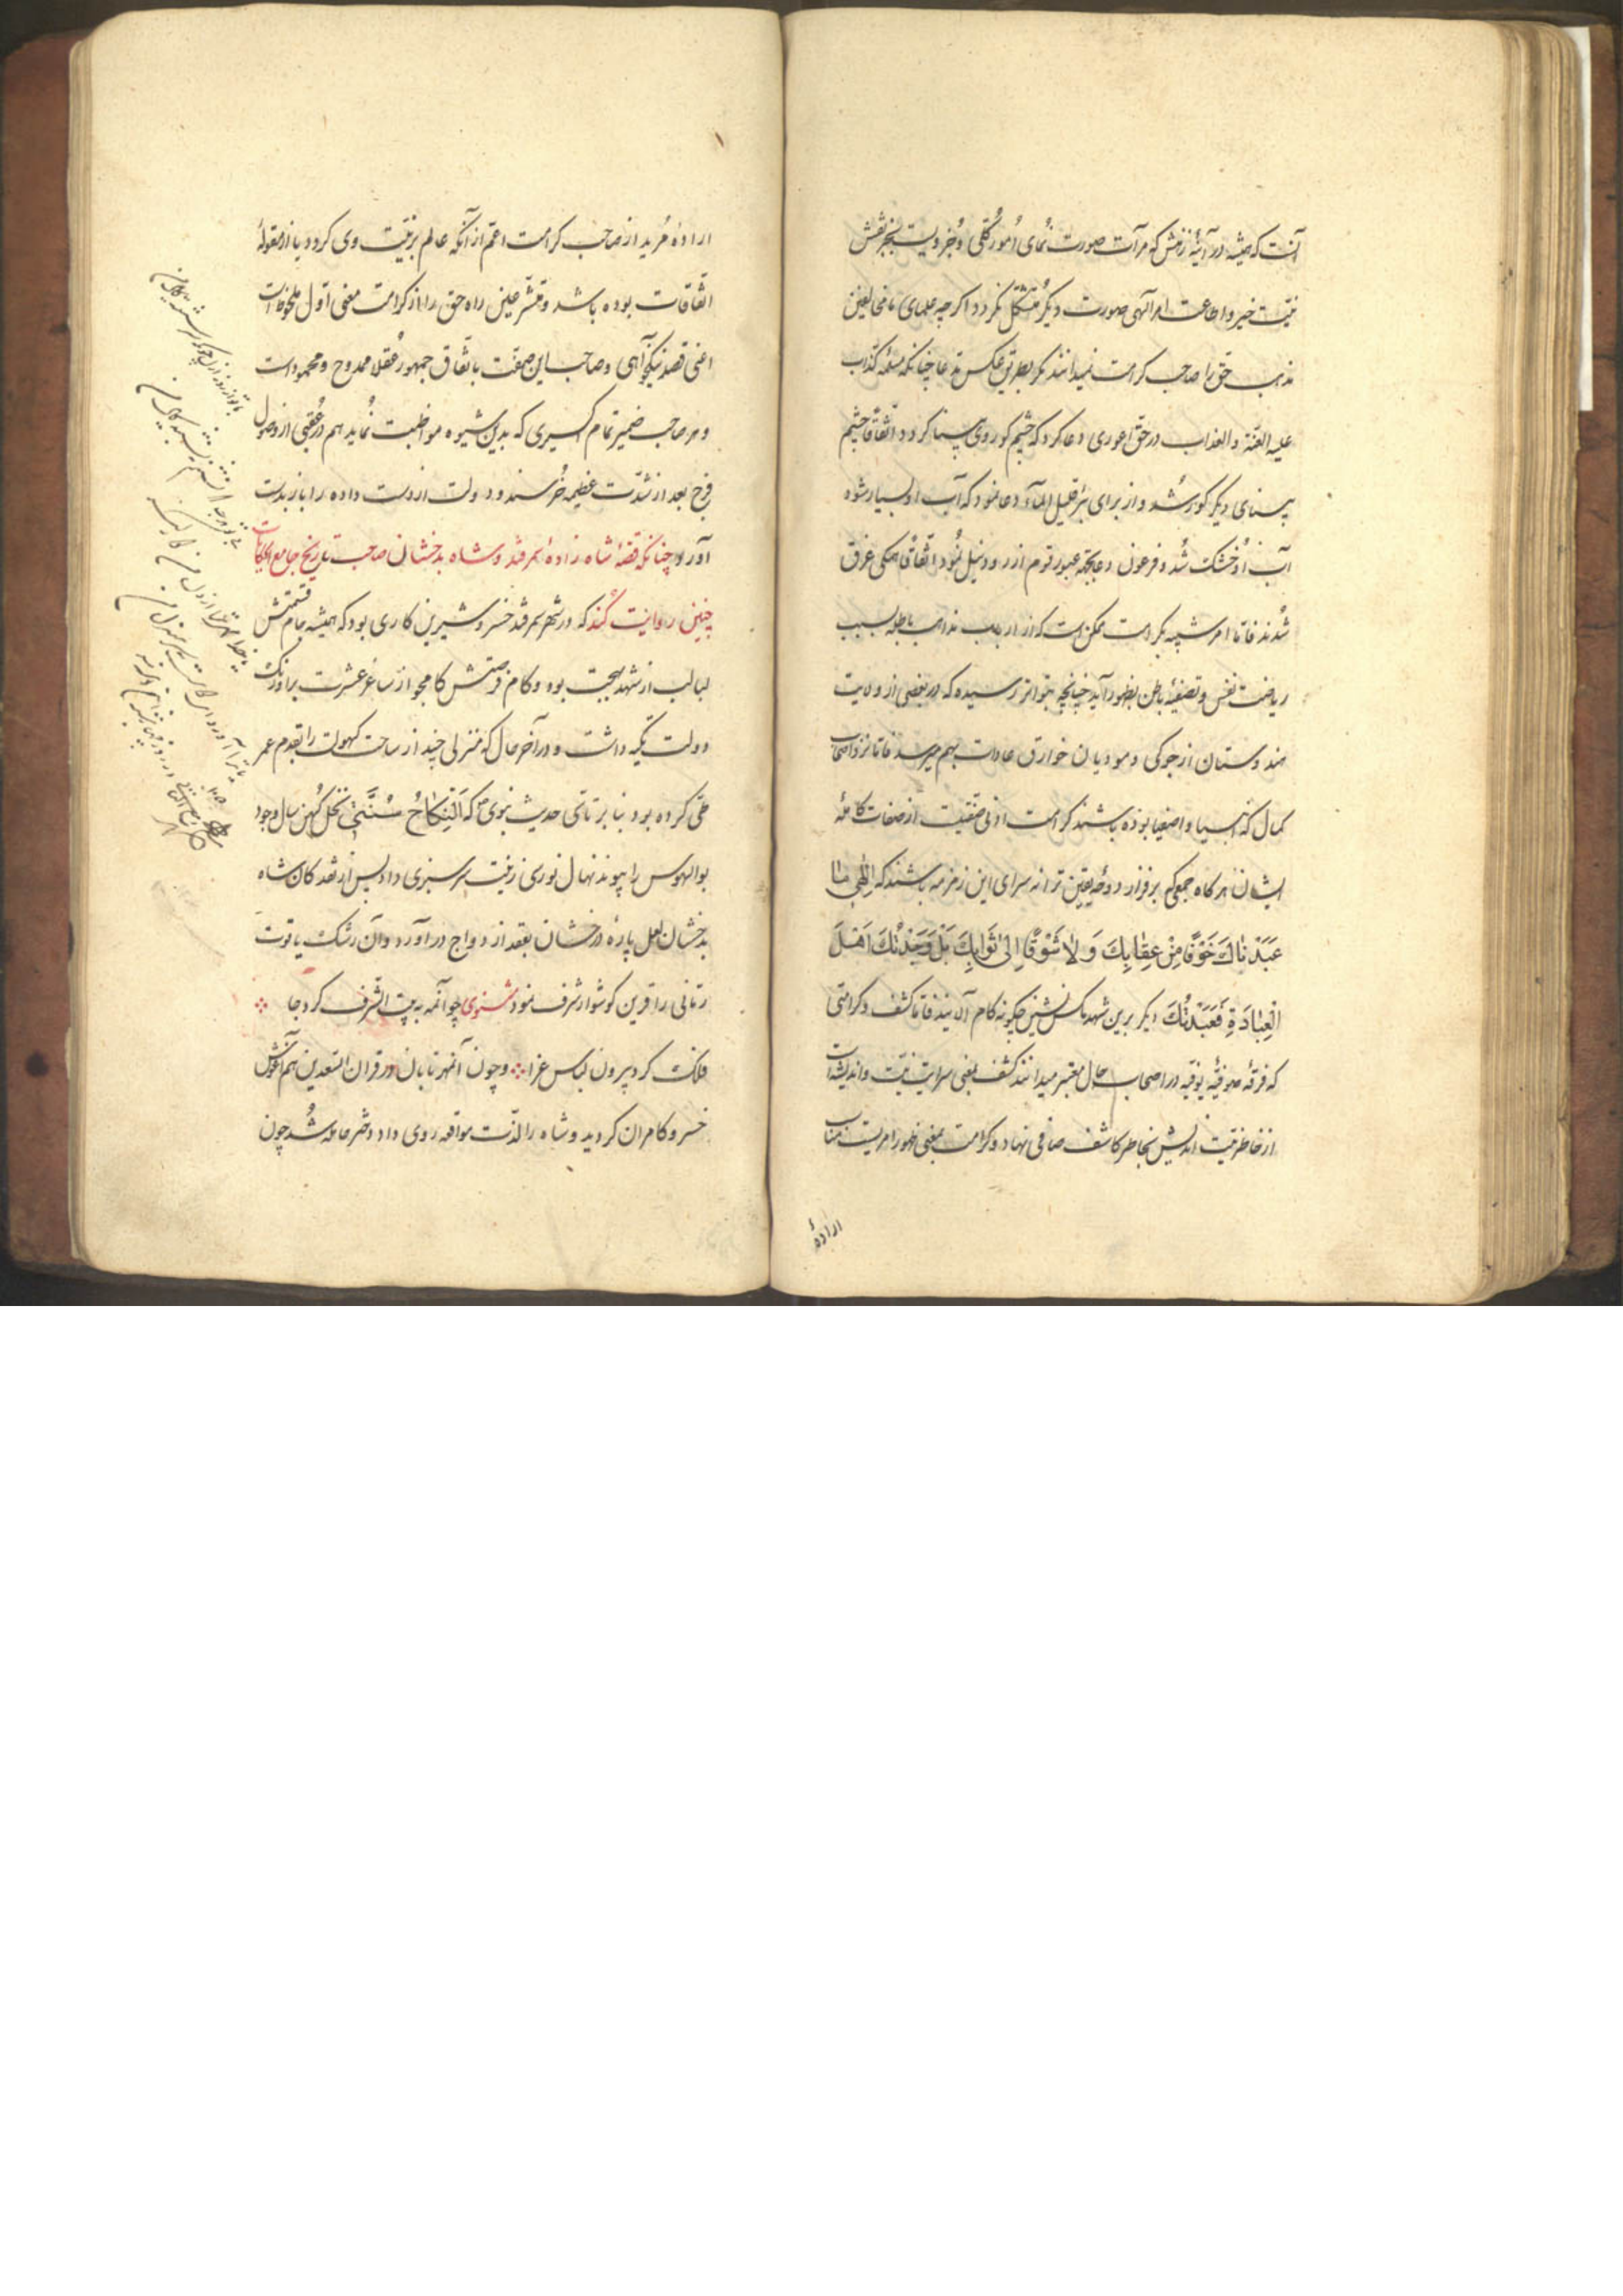 آنست که همیشه در آئینهٔ زنش که مرآت صورت نمای امور کلی و جزویست بجز نقش
نیت خیر و اطاعت امر الهی صورت دیگر متشکل نگردد اگرچه علمای ما مخالفین
مذهب حق را صاحب کرامت نمیدانند مگر بطریق عکس مدعا چنانکه مسیلمهٔ کذاب
علیه اللعنة و العذاب در حق اعوری دعا کرد که چشم کور وی بینا گردد اتفاقا چشم
بینای دیگر کور شد و از برای بئر قلیل المآء دعا نمود که آب او بسیار شود
آب او خشک شد و فرعون دعا بجهة عبور قوم از رود نیل نمود اتفاقا همگی غرق
شدند فاما امر شبیه بکرامت ممکن است که از ارباب مذاهب باطله بسبب
ریاضت نفس و تصفیهٔ باطن بظهور آید چنانچه بتواتر رسیده که در بعضی از ولایت
هندوستان از جوکی و مودیان خوارق عادات بهم میرسد فاما نزد اصحاب
کمال که انبیا و اصفیا بوده باشند کرامت ادنی منقبت از صفات کاملهٔ
ایشان هرگاه جمعی که بر فراز دوحهٔ یقین ترانه سرای این زمزمه باشند که اِلٰهِی مَا
عَبَدْنَاكَ خَوْفًا مِنْ عِقَابِكَ وَلَا شَوْقًا اِلٰی ثَوَابِكَ بَلْ وَجَدْتُكَ اَهْلَ
الْعِبَادَةِ فَعَبَدْتُكَ دیگر برین شهد مگس نشین چگونه کام آلایند فاما کشف و کرامتی
که فرقهٔ صوفیهٔ یوقیه در اصحاب حال معتبر میدانند کشف بمعنی سرایت نیت و اندیشه است
از خاطر نیت اندیش بخاطر کاشف صافی نهاد و کرامت بمعنی ظهور امریست مناسب
ارادهٔ
ارادهٔ مرید از صاحب کرامت اعم از آنکه عالم بر نیت وی گردد یا از مقولهٔ
اتفاقات بوده باشد و متشرعین راه حق را از کرامت معنی اول ملحوظ است
اعنی قصد نیکخواهی و صاحب این صفت باتفاق جمهور عقلا ممدوح و محمود است
و هر صاحب ضمیر تمام اکسیری که بدین شیوه مواظبت نماید هم در عقبی از وصول
فرح بعد از شدت عظیمه خرسند و دولت از دست داده را باز بدست
آورد چنانکه قصهٔ شاه زادهٔ سمرقند و شاه بدخشان صاحب تاریخ جامع الحکایات
چنین روایت کند که در شهر سمرقند خسرو شیرین کاری بود که همیشه جام قسمتش
لبالب از شهد بهجت بود و کام فرصتش کامجو از ساغر عشرت بر اورنگ
دولت تکیه داشت و در آخر حال که منزلی چند از ساحت کهولت را بقدم عمر
طی کرده بود بنا بر تاسی حدیث نبوی که اَلنِّكَاحُ سُنَّتِي نخل کهن سال وجود
بوالهوس را پیوند نهال نوری زینت سرسبزی داد پس از نقد کان شاه
بدخشان لعل پارهٔ درخشان بعقد ازدواج درآورد و آن رشک یاقوت
رمانی را قرین گوشوار شرف نمود مثنوی چو آنمه به بیت الشرف کرد جا
فلک کرد بیرون لباس عزا و چون آنمهر تابان در قران السعدین هم آغوش
خسرو کامران گردید و شاه را لذت مواقعه روی داد دختر حامله شد چون